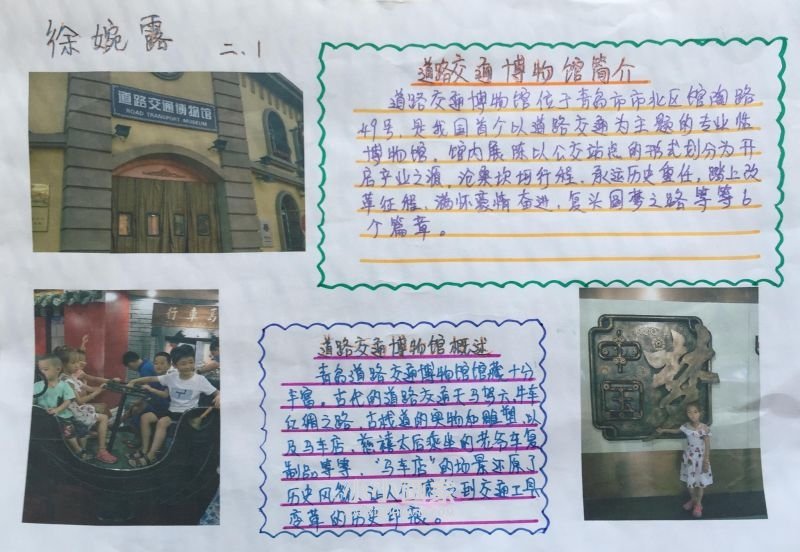 徐婉露 二、1
道路交通博物馆
ROAD TRANSPORT MUSEUM
道路交通博物馆简介
道路交通博物馆位于青岛市市北区馆陶路
49号,是我国首个以道路交通为主题的专业性
博物馆。馆内展陈以公交站点的形式划分为开
启产业之源,沧桑坎坷行程、承运历史重任,踏上改
革征程、满怀豪情奋进、复兴圆梦之路等等6
个篇章。
行車馬
中国梦
道路交通博物馆概述
青岛道路交通博物馆馆藏十分
丰富。古代的道路交通天子驾六、牛车
红绸之路、古栈道的实物和雕塑,以
及马车店、慈禧太后乘坐的劳斯车复
制品等等,“马车店”的场景还原了
历史风貌,让人们感受到交通工具
变革的历史印痕。